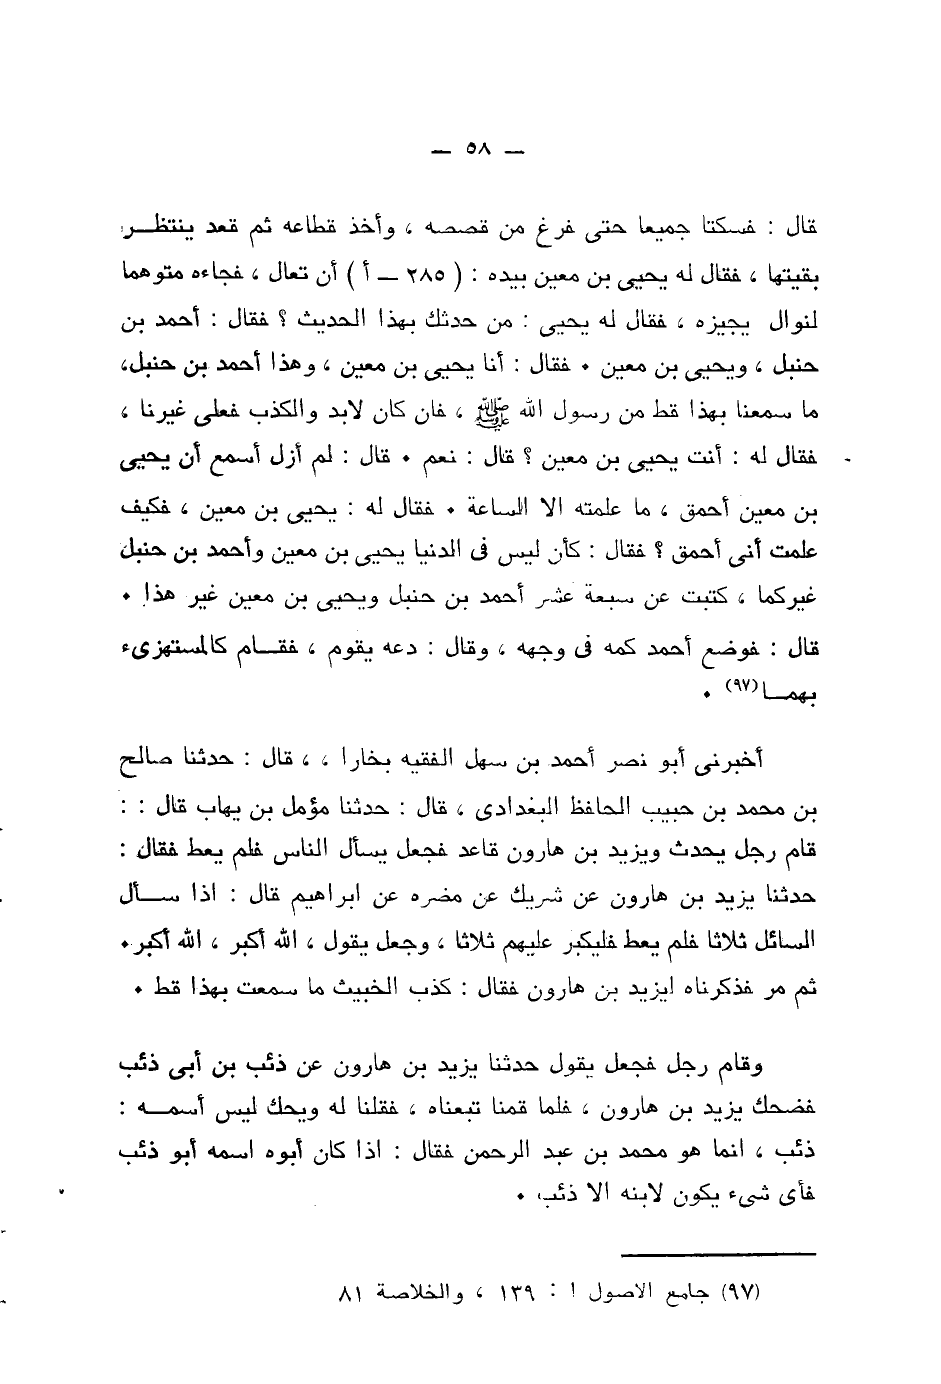 — ٥٨ —
قال : فسكتا جميعا حتى فرغ من قصصه ، وأخذ قطاعه ثم قعد ينتظـــر
بقيتها ، فقال له يحيى بن معين بيده : ( ٢٨٥ — أ ) أن تعال ، فجاءه متوهما
لنوال يجيزه ، فقال له يحيى : من حدثك بهذا الحديث ؟ فقال : أحمد بن
حنبل ، ويحيى بن معين • فقال : أنا يحيى بن معين ، وهذا أحمد بن حنبل،
ما سمعنا بهذا قط من رسول الله ﷺ ، فان كان لابد والكذب فعلى غيرنا ،
فقال له : أنت يحيى بن معين ؟ قال : نعم • قال : لم أزل أسمع أن يحيى
بن معين أحمق ، ما علمته الا الساعة • فقال له : يحيى بن معين ، فكيف
علمت أنى أحمق ؟ فقال : كأن ليس فى الدنيا يحيى بن معين وأحمد بن حنبل
غيركما ، كتبت عن سبعة عشر أحمد بن حنبل ويحيى بن معين غير هذا •
قال : فوضع أحمد كمه فى وجهه ، وقال : دعه يقوم ، فقـــام كالمستهزىء
بهمـــا(٩٧) •
أخبرنى أبو نصر أحمد بن سهل الفقيه بخارا ، ، قال : حدثنا صالح
بن محمد بن حبيب الحافظ البغدادى ، قال : حدثنا مؤمل بن يهاب قال : :
قام رجل يحدث ويزيد بن هارون قاعد فجعل يسأل الناس فلم يعط فقال :
حدثنا يزيد بن هارون عن شريك عن مضره عن ابراهيم قال : اذا ســـأل
السائل ثلاثا فلم يعط فليكبر عليهم ثلاثا ، وجعل يقول ، الله أكبر ، الله أكبر•
ثم مر فذكرناه ايزيد بن هارون فقال : كذب الخبيث ما سمعت بهذا قط •
وقام رجل فجعل يقول حدثنا يزيد بن هارون عن ذئب بن أبى ذئب
فضحك يزيد بن هارون ، فلما قمنا تبعناه ، فقلنا له ويحك ليس أسمـــه :
ذئب ، انما هو محمد بن عبد الرحمن فقال : اذا كان أبوه اسمه أبو ذئب
فأى شىء يكون لابنه الا ذئب •
(٩٧) جامع الاصول ١ : ١٣٩ ، والخلاصة ٨١